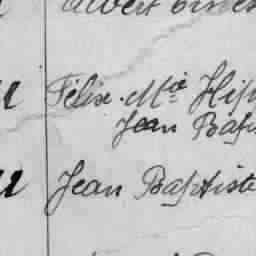 Albert
Félix. Mie Hip
Jean Bap
Jean Baptiste